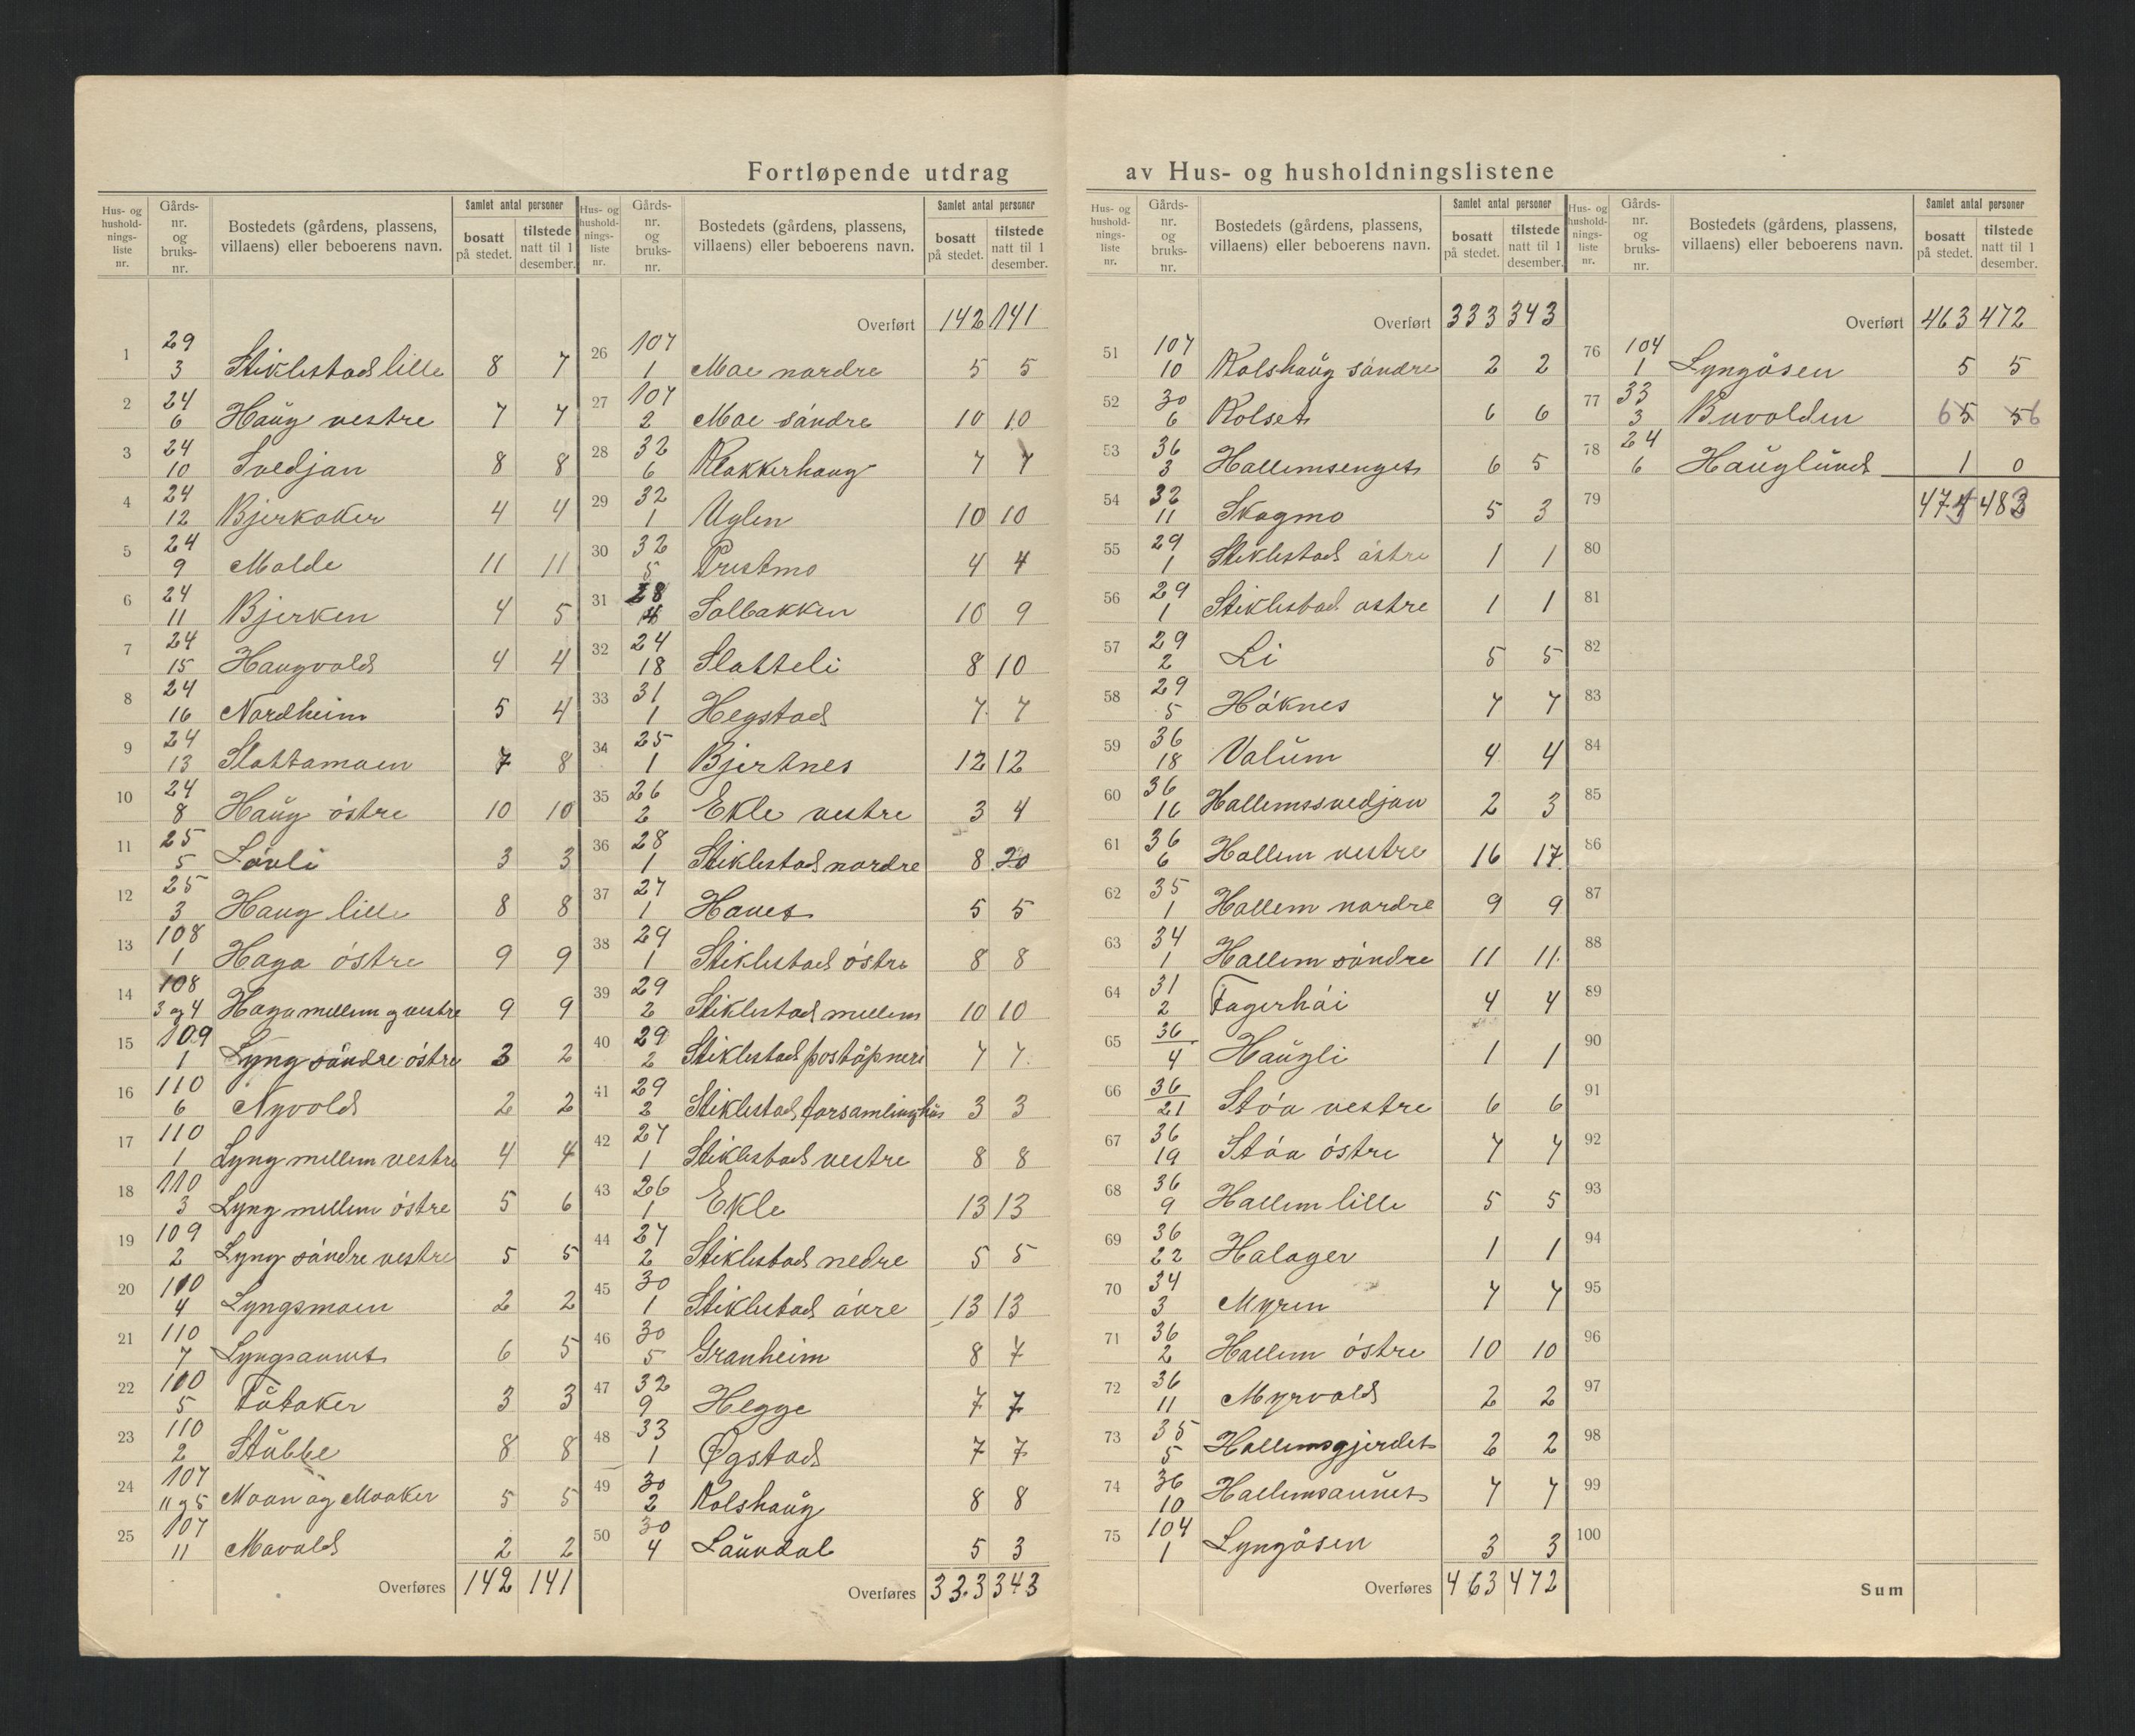 Fortløpende utdrag av Hus- og husholdningslistene
Hus- og hushold-nings-liste nr. | Gårds-nr. og bruks-nr. | Bostedets (gårdens, plassens, villaens) eller beboerens navn. | Samlet antal personer | bosatt på stedet. | tilstede natt til 1 desember.
1 29 3 Stiklestad lille 8 7
2 24 6 Haug vestre 7 7
3 24 10 Svedjan 8 8
4 24 12 Bjerkaker 4 4
5 24 9 Molde 11 11
6 24 11 Bjerken 4 5
7 24 15 Haugvold 4 4
8 24 16 Nordheim 5 4
9 24 13 Slottamoen 7 8
10 24 8 Haug östre 10 10
11 25 5 Lövli 3 3
12 25 3 Haug lille 8 8
13 108 1 Haga östre 9 9
14 108 3 og 4 Haga mellem og vestre 9 9
15 109 1 Lyng söndre östre 3 2
16 110 6 Nyvold 2 2
17 110 1 Lyng mellem vestre 4 4
18 110 3 Lyng mellem östre 5 6
19 109 2 Lyng söndre vestre 5 5
20 110 4 Lyngsmoen 2 2
21 110 7 Lyngsaunet 6 5
22 110 5 Tuåker 3 3
23 110 2 Stubbe 8 8
24 107 11 og 5 Moan og Moaker 5 5
25 107 11 Movold 2 2
Overføres 142 141
Hus- og hushold-nings-liste nr. | Gårds-nr. og bruks-nr. | Bostedets (gårdens, plassens, villaens) eller beboerens navn. | Samlet antal personer | bosatt på stedet. | tilstede natt til 1 desember.
Overført 142 141
26 107 1 Moe nordre 5 5
27 107 2 Moe söndre 10 10
28 32 6 Klokkerhaug 7 7
29 32 1 Uglen 10 10
30 32 5 Prestmo 4 4
31 28 4 Solbakken 10 9
32 24 18 Slotteli 8 10
33 31 1 Hegstad 7 7
34 25 1 Bjertnes 12 12
35 26 2 Ekle vestre 3 4
36 28 1 Stiklestad nordre 8 20
37 27 1 Hovet 5 5
38 29 1 Stiklestad östre 8 8
39 29 2 Stiklestad mellem 10 10
40 29 2 Stiklestad poståpneri 7 7
41 29 2 Stiklestad forsamlinghus 3 3
42 27 1 Stiklestad vestre 8 8
43 26 1 Ekle 13 13
44 27 2 Stiklestad nedre 5 5
45 30 1 Stiklestad övre 13 13
46 30 5 Granheim 8 7
47 32 9 Hegge 7 7
48 33 1 Øgstad 7 7
49 30 2 Kolshaug 8 8
50 30 4 Laundal 5 3
Overføres 333 343
Hus- og hushold-nings-liste nr. | Gårds-nr. og bruks-nr. | Bostedets (gårdens, plassens, villaens) eller beboerens navn. | Samlet antal personer | bosatt på stedet. | tilstede natt til 1 desember.
Overført 333 343
51 107 10 Kolshaug söndre 2 2
52 30 6 Kolset 6 6
53 36 3 Hallemsenget 6 5
54 32 11 Skogmo 5 3
55 29 1 Stiklestad östre 1 1
56 29 1 Stiklestad östre 1 1
57 29 2 Li 5 5
58 29 5 Höknes 7 7
59 36 18 Valum 4 4
60 36 16 Hallemssvedjan 2 3
61 36 6 Hallem vestre 16 17
62 35 1 Hallem nordre 9 9
63 34 1 Hallem söndre 11 11
64 31 2 Fagerhöi 4 4
65 36 4 Haugli 1 1
66 36 21 Stöa vestre 6 6
67 36 19 Stöa östre 7 7
68 36 9 Hallem lille 5 5
69 36 22 Halager 1 1
70 34 3 Myren 7 7
71 36 2 Hallem östre 10 10
72 36 11 Myrvold 2 2
73 35 5 Hallemsgjerdet 2 2
74 36 10 Hallemsaunet 7 7
75 104 1 Lyngåsen 3 3
Overføres 463 472
Hus- og hushold-nings-liste nr. | Gårds-nr. og bruks-nr. | Bostedets (gårdens, plassens, villaens) eller beboerens navn. | Samlet antal personer | bosatt på stedet. | tilstede natt til 1 desember.
Overført 463 472
76 104 1 Lyngåsen 5 5
77 33 3 Buvolden 65 56
78 24 6 Hauglund 1 0
79 483
80
81
82
83
84
85
86
87
88
89
90
91
92
93
94
95
96
97
98
99
100
Sum